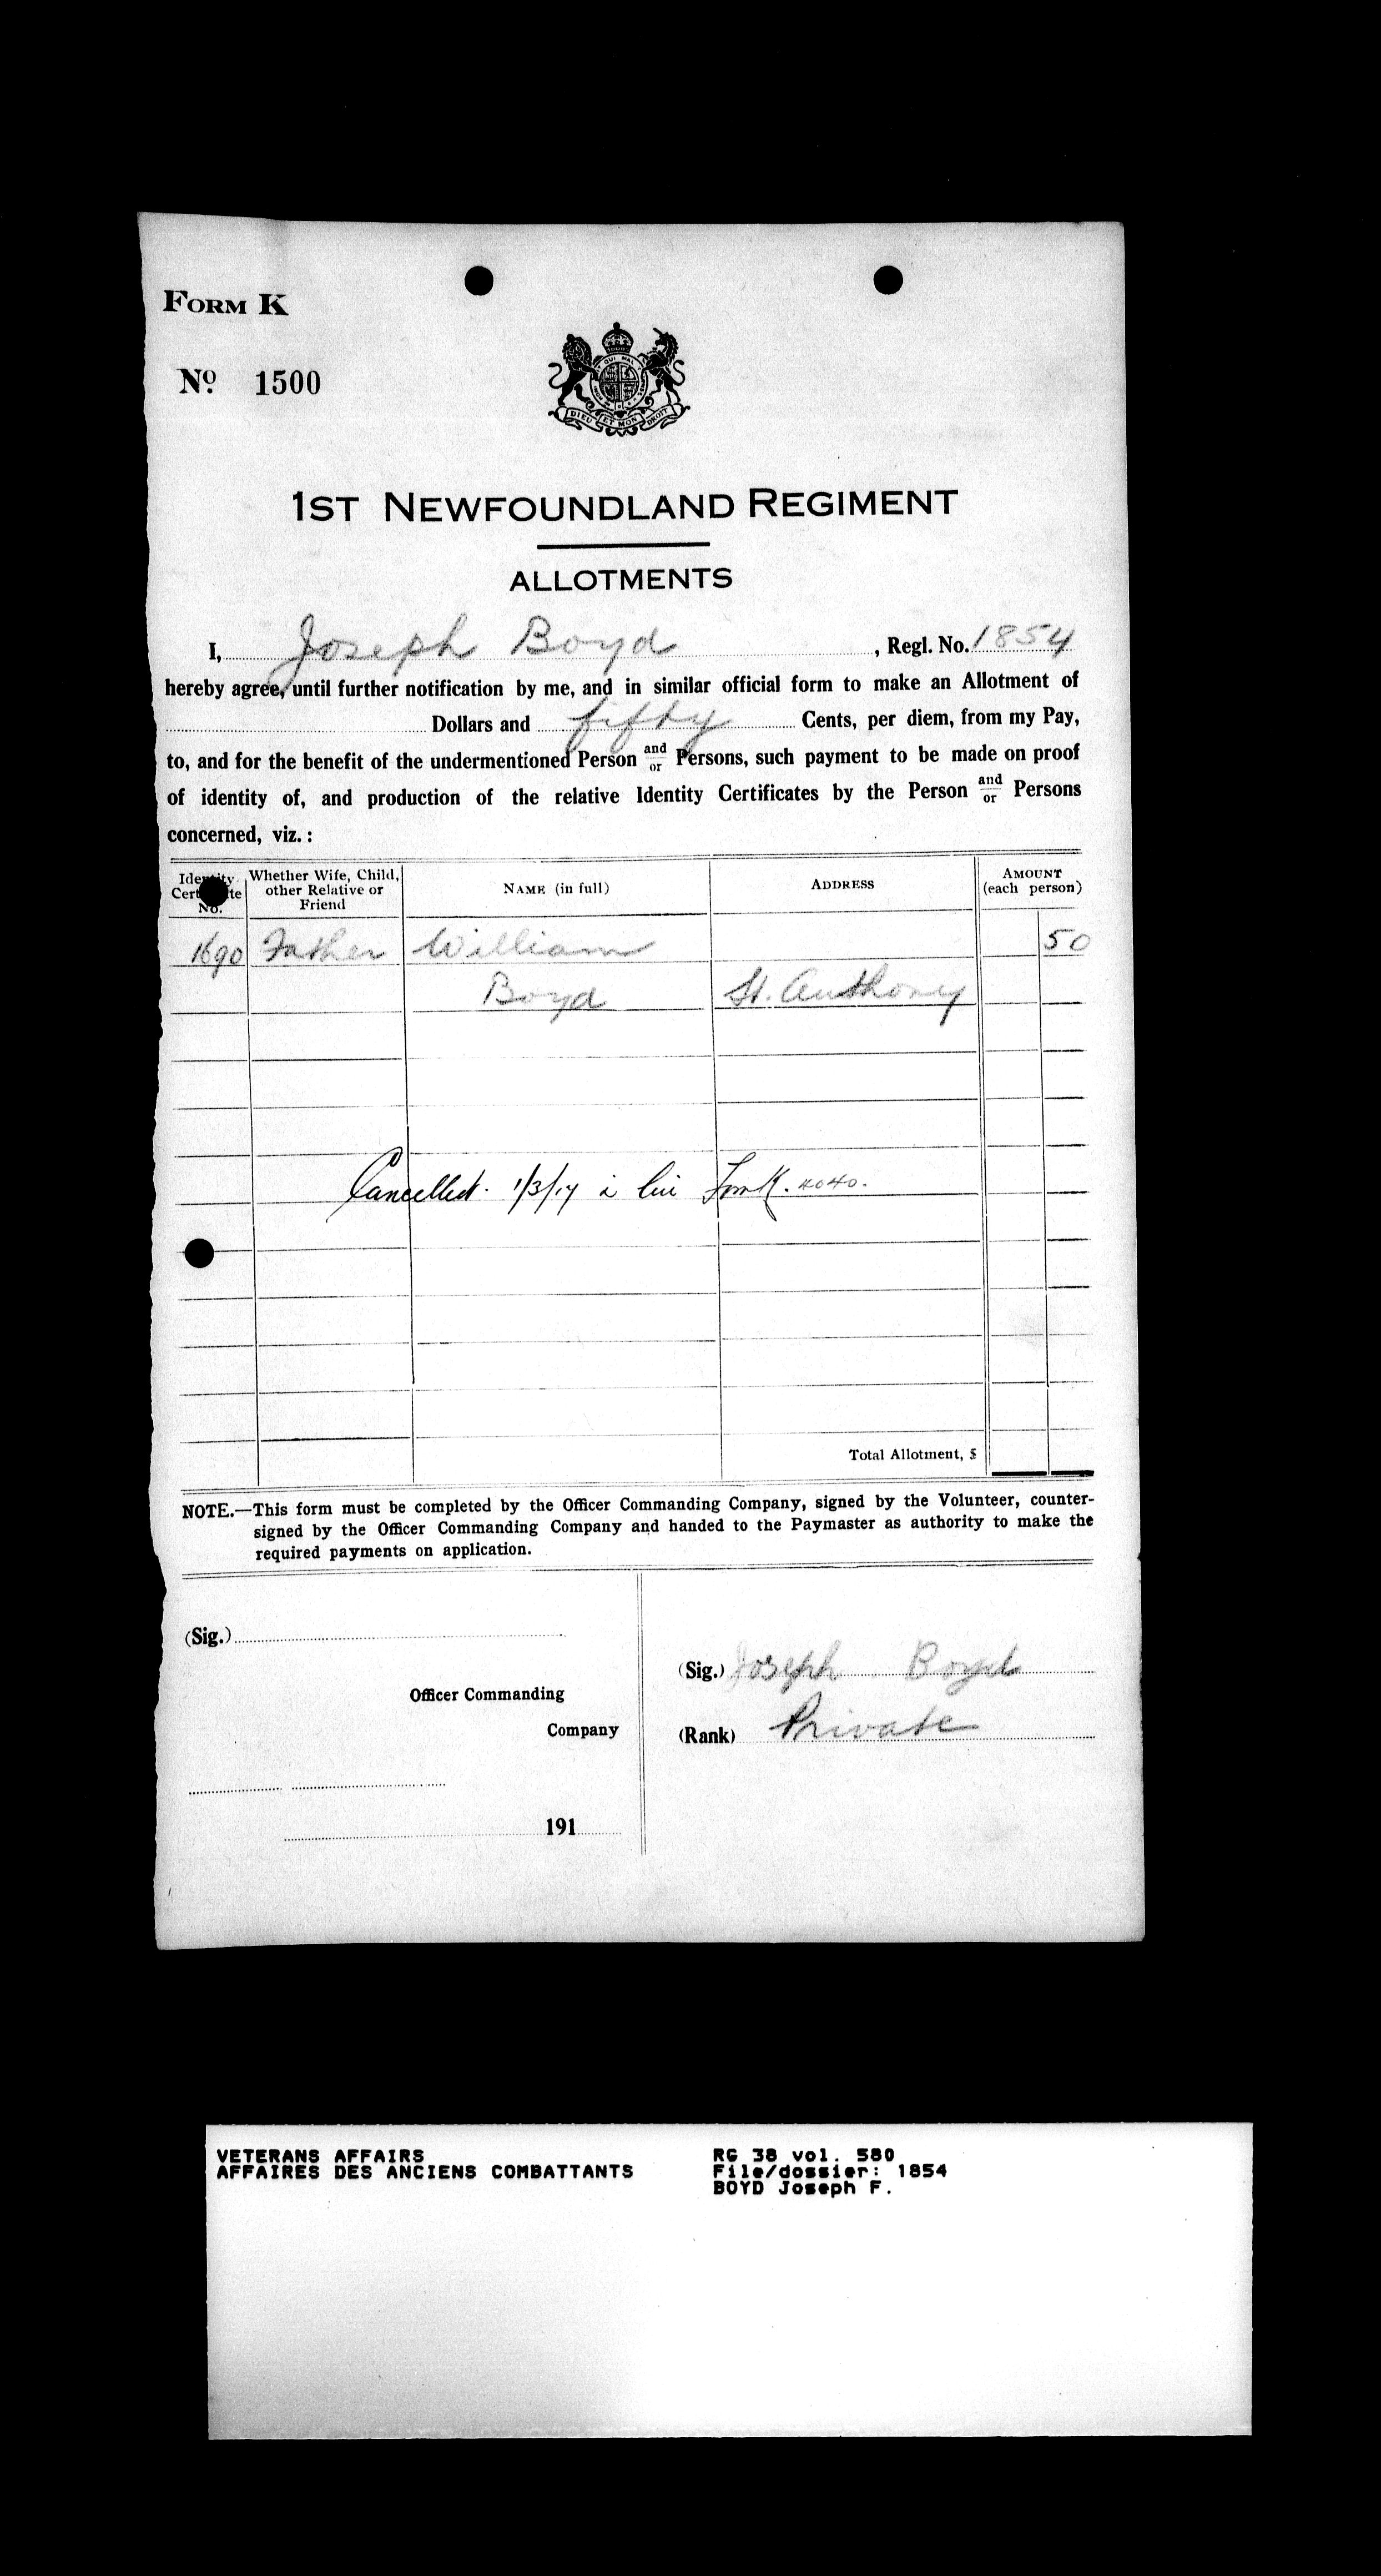 FORM K
No. 1500
QUI MAL
DIEU ET MON DROIT
1ST NEWFOUNDLAND REGIMENT
ALLOTMENTS
I, Joseph Boyd, Regl. No. 1854
hereby agree, until further notification by me, and in similar official form to make an Allotment of
Dollars and fifty Cents, per diem, from my Pay,
to, and for the benefit of the undermentioned Person and/or Persons, such payment to be made on proof
of identity of, and production of the relative Identity Certificates by the Person and/or Persons
concerned, viz.:
Identity Certificate No. Whether Wife, Child, other Relative or Friend NAME (in full) ADDRESS AMOUNT (each person)
1690 Father William 50
Boyd St. Anthony
Cancelled. 1/3/17 in lieu Form K. 4040.
Total Allotment, $
NOTE.—This form must be completed by the Officer Commanding Company, signed by the Volunteer, counter-
signed by the Officer Commanding Company and handed to the Paymaster as authority to make the
required payments on application.
(Sig.)
Officer Commanding
Company
191
(Sig.) Joseph Boyd
(Rank) Private
VETERANS AFFAIRS RG 38 vol. 580
AFFAIRES DES ANCIENS COMBATTANTS File/dossier: 1854
BOYD Joseph F.